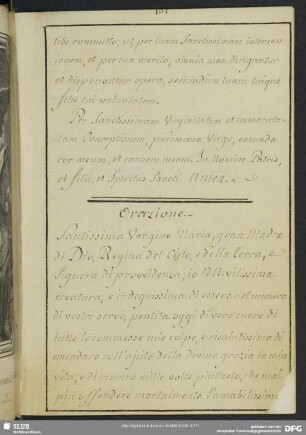 101
tibi committo; ut per tuam Sanctissimam interces-
sionem, et per tua merita, omnia mea dirigantur
et disponantur opera, secundum tuam tuique
filii tui voluntatem.
Per Sanctissimam Virginitatem et immacula-
tam Conceptionem, purissima Virgo, emunda
cor meum, et carnem meam. In nomine Patris,
et filii, et Spiritus Sancti. Amen.
Orazione.
Santissima Vergine Maria, gran Madre
di Dio, Regina del Cielo, e della terra, e
Signora di providenza, io NN. vilissima
creatura, e indegnissima di essere nel numero
di vostri servi, pentita oggi di vero cuore di
tutte le commesse mie colpe, e risolutissima di
emendare coll'ajuto della divina grazia la mia
vita, e di morire mille volte piuttosto, che mai
più offendere mortalmente l'amabilissimo